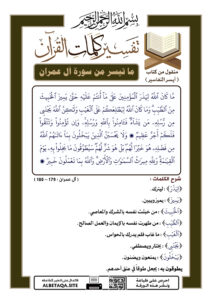 بسم الله الرحمن الرحيم
تفسير كلمات القرآن
منقول من كتاب
(أيسر التفاسير)
ما تيسر من سورة آل عمران
مَّا كَانَ اللَّهُ لِيَذَرَ الْمُؤْمِنِينَ عَلَىٰ مَا أَنتُمْ عَلَيْهِ حَتَّىٰ يَمِيزَ الْخَبِيثَ
مِنَ الطَّيِّبِ وَمَا كَانَ اللَّهُ لِيُطْلِعَكُمْ عَلَى الْغَيْبِ وَلَٰكِنَّ اللَّهَ يَجْتَبِي
مِن رُّسُلِهِ مَن يَشَاءُ فَآمِنُوا بِاللَّهِ وَرُسُلِهِ وَإِن تُؤْمِنُوا وَتَتَّقُوا
فَلَكُمْ أَجْرٌ عَظِيمٌ وَلَا يَحْسَبَنَّ الَّذِينَ يَبْخَلُونَ بِمَا آتَاهُمُ اللَّهُ
مِن فَضْلِهِ هُوَ خَيْرًا لَّهُم بَلْ هُوَ شَرٌّ لَّهُمْ سَيُطَوَّقُونَ مَا بَخِلُوا بِهِ يَوْمَ
الْقِيَامَةِ وَلِلَّهِ مِيرَاثُ السَّمَاوَاتِ وَالْأَرْضِ وَاللَّهُ بِمَا تَعْمَلُونَ خَبِيرٌ
شرح الكلمات :
( آل عمران : 179 - 180 )
(لِيَذَرَ) : ليترك.
(يَمِيزَ) : يميز ويبين.
(الْخَبِيثَ) : من خبثت نفسه بالشرك والمعاصي.
(الطَّيِّبِ) : من طهرت نفسه بالإيمان والعمل الصالح.
(الْغَيْبِ) : ما غاب فلم يدرك بالحواس.
(يَجْتَبِي) : يختار ويصطفي.
(يَبْخَلُونَ) : يمنعون ويضنون.
يطوقون به : يجعل طوقا في عنق أحدهم.
ALBETAQA.SITE